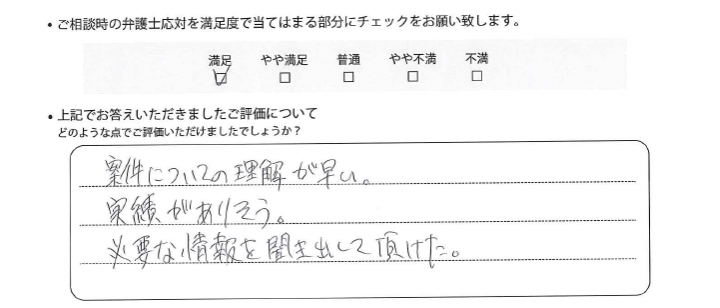 • ご相談時の弁護士応対を満足度で当てはまる部分にチェックをお願い致します。
満足 やや満足 普通 やや不満 不満
☑ □ □ □ □
• 上記でお答えいただきましたご評価について
どのような点でご評価いただけましたでしょうか？
案件についての理解が早い。
実績がありそう。
必要な情報を聞き出して頂けた。